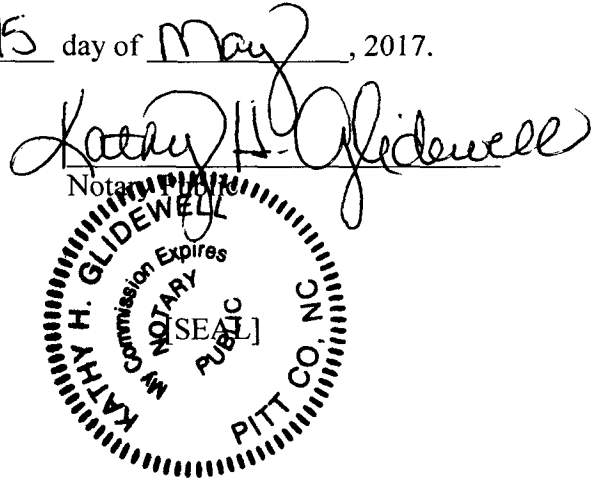 15 day of May, 2017.
Kathy H. Glidewell
Notary Public
KATHY H. GLIDEWELL
My Commission Expires
NOTARY
[SEAL]
PUBLIC
PITT CO, NC